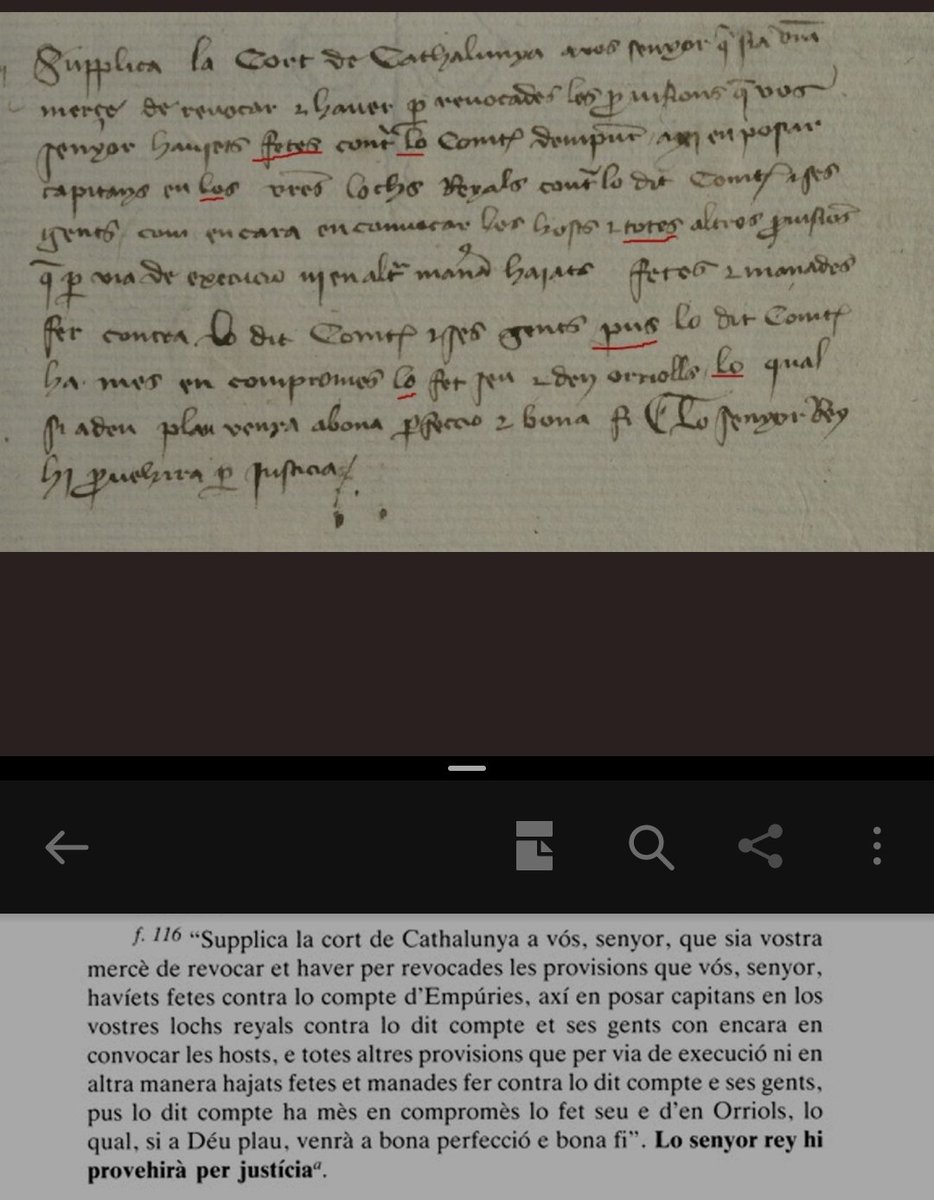 Supplica la Cort de Cathalunya a vos senyor q̄ sia vr̄a
merçe de revocar ⁊ haver ꝑ revocades les ꝓvisions q̄ vos
senyor haviets fetes contᵃ lo Comte dempur̄ axi en posar
capitans en los vr̄es lochs Reyals contᵃ lo dit Comte ⁊ ses
gents com encara en convocar les hosts ⁊ totes altres ꝓvisiōs
q̄ ꝑ via de execucio ni en altᵃ manᵃ hajats fetes ⁊ manades
fer contra lo dit Comte ⁊ ses gents pus lo dit Comte
ha mes en compromes lo fet seu ⁊ den orriolls lo qual
si a deu plau venra a bona ꝑfeccio ⁊ bona fi Lo senyor Rey
hi ꝓvehira ꝑ justicia
f. 116 “Supplica la cort de Cathalunya a vós, senyor, que sia vostra
mercè de revocar et haver per revocades les provisions que vós, senyor,
havíets fetes contra lo compte d’Empúries, axí en posar capitans en los
vostres lochs reyals contra lo dit compte et ses gents con encara en
convocar les hosts, e totes altres provisions que per via de execució ni en
altra manera hajats fetes et manades fer contra lo dit compte e ses gents,
pus lo dit compte ha mès en compromès lo fet seu e d’en Orriols, lo
qual, si a Déu plau, venrà a bona perfecció e bona fi”. Lo senyor rey hi
provehirà per justíciaᵃ.